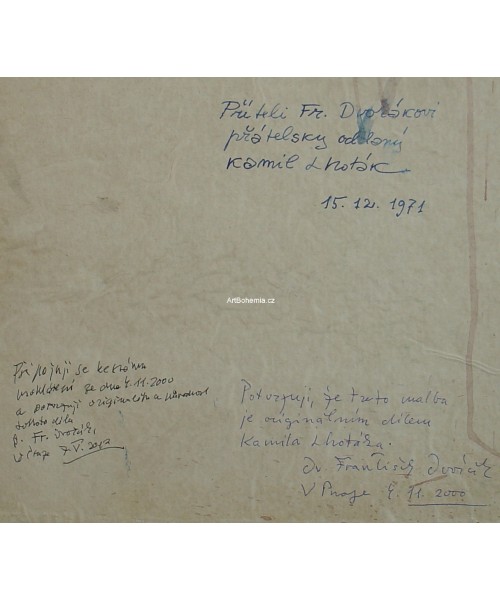 Příteli Fr. Dvořákovi
přátelsky oddaný
Kamil Lhoták
15. 12. 1971
ArtBohemia.cz
Připojuji se ke
prohlášení ze dne 4.11.2000
a potvrzuji originalitu a původnost
tohoto díla
Fr. Dvořák,
V Praze 7.V.
Potvrzuji, že tato malba
je originálním dílem
Kamila Lhotáka.
Dr. František Dvořák
V Praze 4. 11. 2000